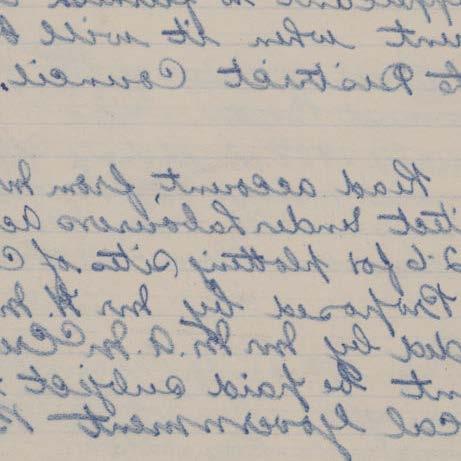 unt when it will
to District Council.
Read account from Mr
itect under Labourers Ac
2.6 for plotting sites of C
Proposed by Mr H. M
ded by Mr A.
nt be paid subject
cal Government B